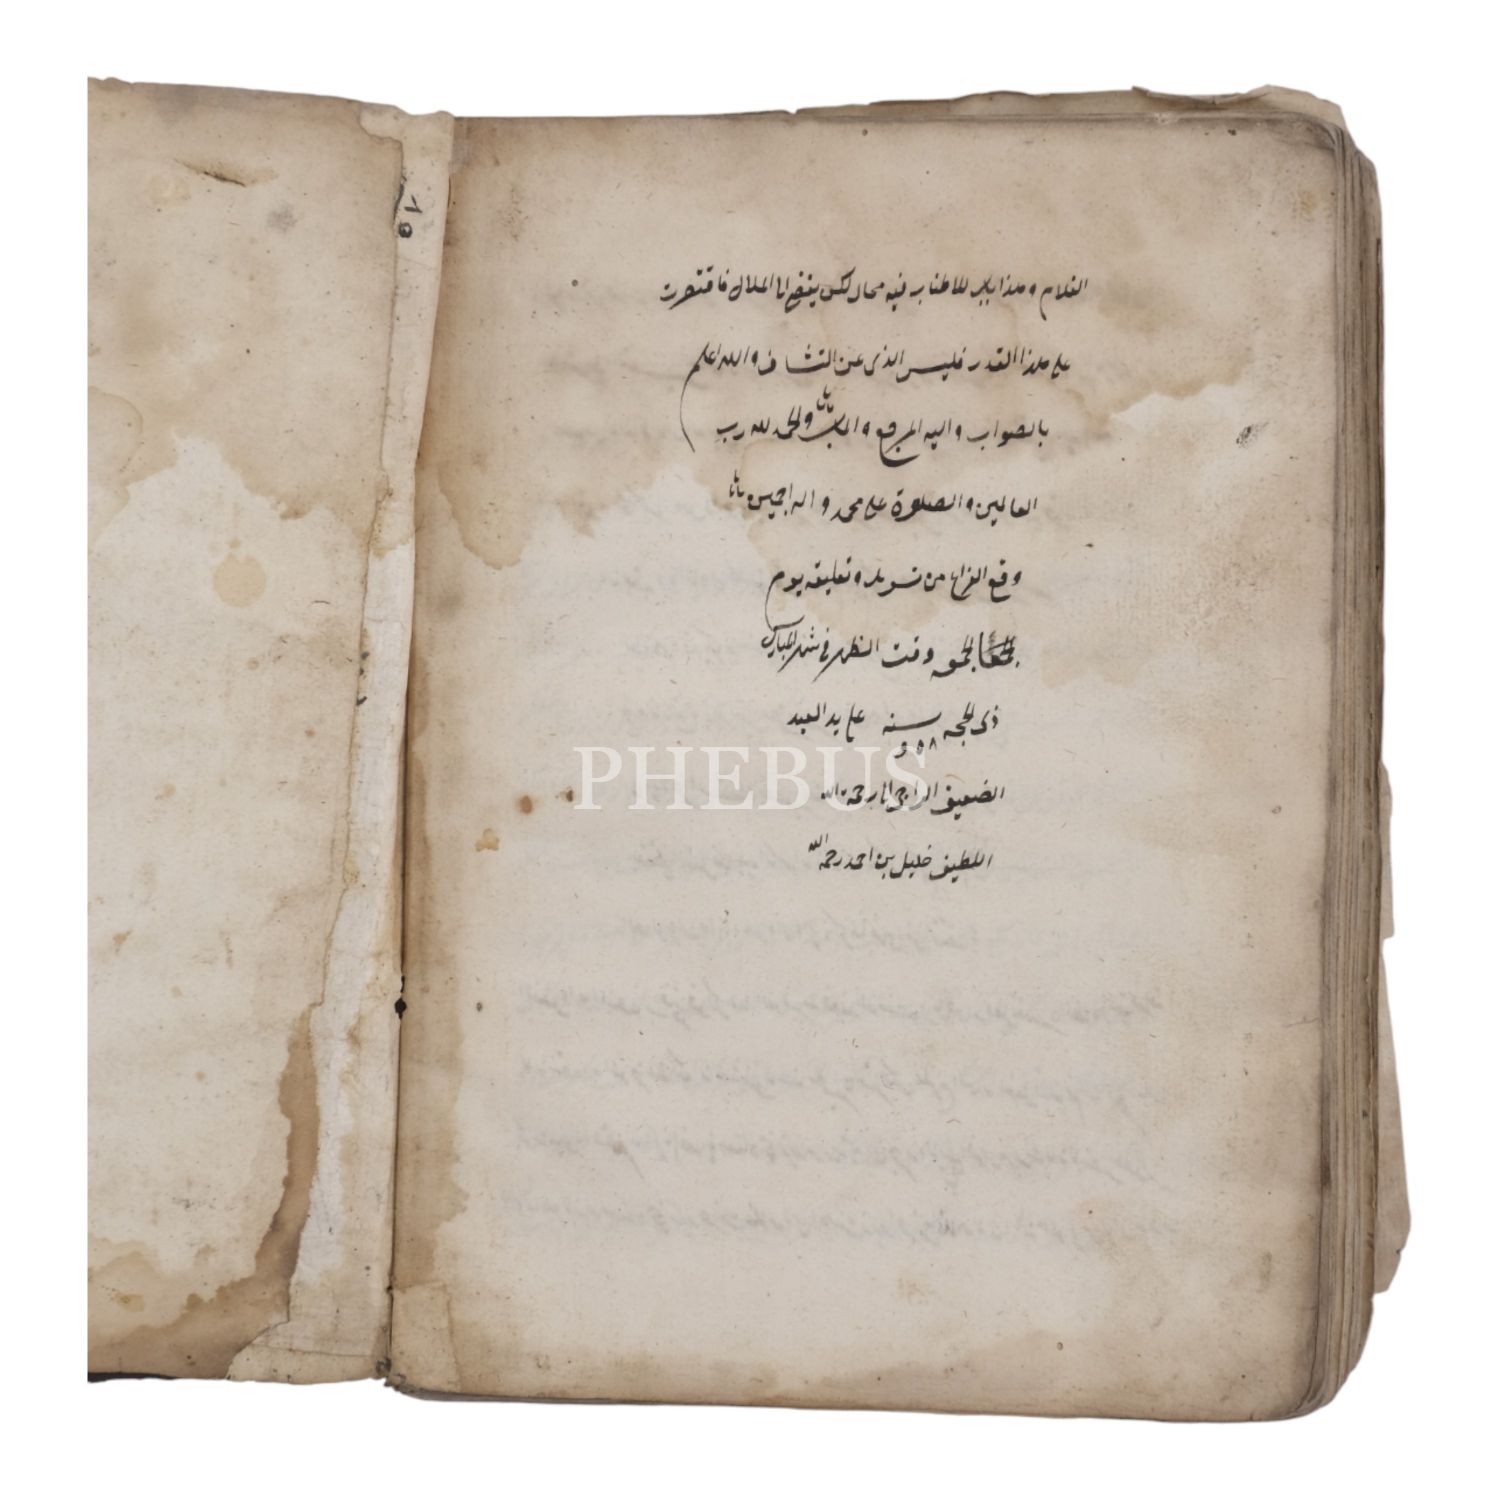 الظلام وهذا بابٌ للاطناب فيه مجال لكن يفضى الى الملال فاقتصرت
على هذا القدر فليس الذى عن التشاف والله اعلم
بالصواب واليه المرجع والمآب والحمد لله رب
العالمين والصلوة على محمد واله اجمعين
وقع الفراغ من تسويده وتعليقه يوم
الجمعه وقت الظهر فى شهر المبارك
ذى الحجه سنه ٨٥٩ على يد العبد
الضعيف الراجى الى رحمة الله
اللطيف خليل بن احمد رحمه الله
PHEBUS